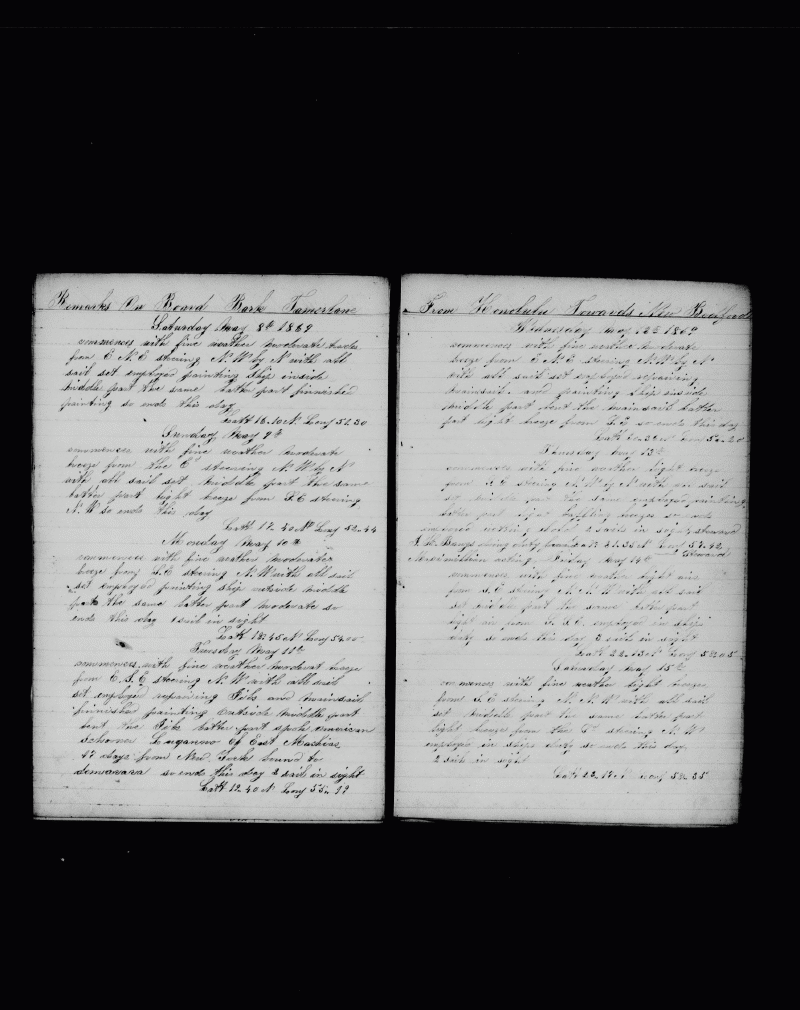 Remarks On Board Bark Tamerlane
Saturday May 8th 1869
commences with fine weather moderate trades
from E N E steering N. W by N with all
sail set employed painting ship inside
middle part the same latter part finished
painting so ends this day
Latt 16.10 N Long 51.30
Sunday May 9th
commences with fine weather moderate
breeze from the Et steering N. W by N
with all sail set middle part the same
latter part light breeze from S E steering
N. W so ends this day
Latt 17.40 N Long 52.44
Monday May 10th
commences with fine weather moderate
breeze from S. E steering N. W with all sail
set employed painting ship outside middle
part the same latter part moderate so
ends this day 1 sail in sight
Latt 18.45 N Long 54.00
Tuesday May 11th
commences with fine weather moderat breeze
from E. S. E steering N. W with all sail
set employed repairing Jibs and mainsail
finnished painting outside middle part
bent the Jibs latter part spoke american
schoner of East Machias
17 days from New York bound to
demarara so ends this day 2 sails in sight
Latt 19.40 N Long 55.19
From Honolulu Towards New Bedford
Wednesday May 12th 1869
commences with fine weather moderate
breeze from E N. E steering N. W by N
with all sail set employed repairing
mainsail and painting ship inside
middle part bent the mainsail latter
part light breeze from S. E so ends this day
Latt Long 56.20
Thursday May 13th
commences with fine weather light breeze
from S. E steering N. W by N with all sail
set middle part the same employed painting
latter part light baffling breezes so ends
2 sails in sight steward
off duty Latt 21.35 N Long 57.42
Maximillian acting Steward
Friday May 14th
commences with fine weather light airs
from S. E steering N. N. W with all sail
set middle part the same latter part
light air from S. S. E. employed in ships
duty so ends this day 3 sails in sight
Latt 22.13 N Long 58.05
Saturday May 15th
commences with fine weather light breeze
from S. E steering N. N. W with all sail
set middle part the same latter part
light breeze from the Et steering N. W
employed in ships duty so ends this day
2 sails in sight
Latt 23.17 N Long 58.35